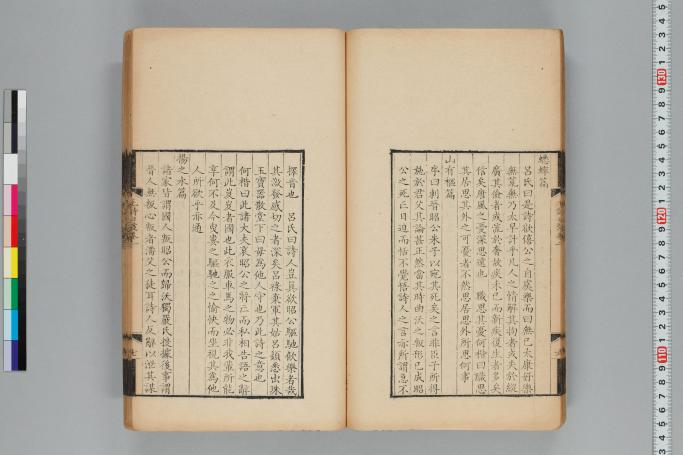 蟋蟀篇
呂氏曰是詩欲僖公之自虞樂而曰無已太康好樂
無荒無乃太早計乎凡人之情解其拘者或失於縱
廣其儉者或流於奢故疾未已而新疾復生者多矣
信矣唐風之憂深思遠也 職思其憂何楷曰職思
其居思其外之可憂者不然思居思外所思何事
山有樞篇
序曰刺晉昭公朱子以宛其死矣之言非臣子所得
施於君父其論甚正然當其時曲沃之叛形已成昭
公之死亡日迫而恬不覺悟詩人之言亦所謂急不
擇音也 呂氏曰詩人豈真欲昭公馳驅飲樂者哉
其激發感切之者深矣呂祿棄軍其姑呂嬃悉出珠
玉寶器散堂下曰毋為他人守也乃此詩之意也
何楷曰此諸大夫哀昭公之將亡而私相告語之辭
謂此岌岌者國也此衣服車馬之物必非我輩所能
享何不及今曳婁之驅馳之之愉快而坐視其為他
人所欲乎亦通
揚之水篇
諸家皆謂國人叛昭公而歸沃獨嚴氏據後事謂
晉人無叛心叛者潘父之徒耳詩人反辭以泄其謀